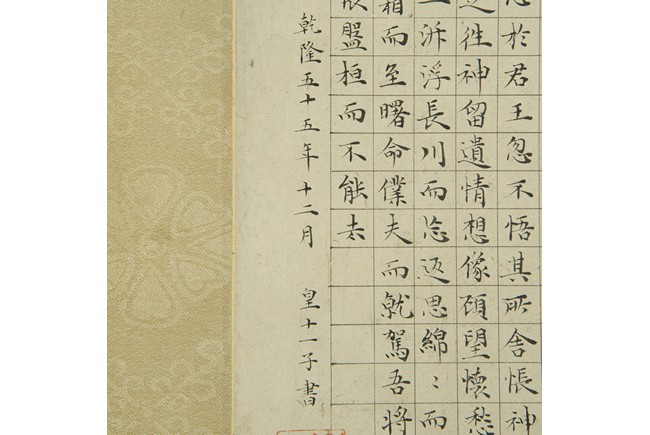 心於君王忽不悟其所舍悵神
往神留遺情想像頋望懷愁
泝浮長川而忘返思綿〻而
霜而至曙命僕夫而就駕吾將
盤桓而不能去
乾隆五十五年十二月 皇十一子書